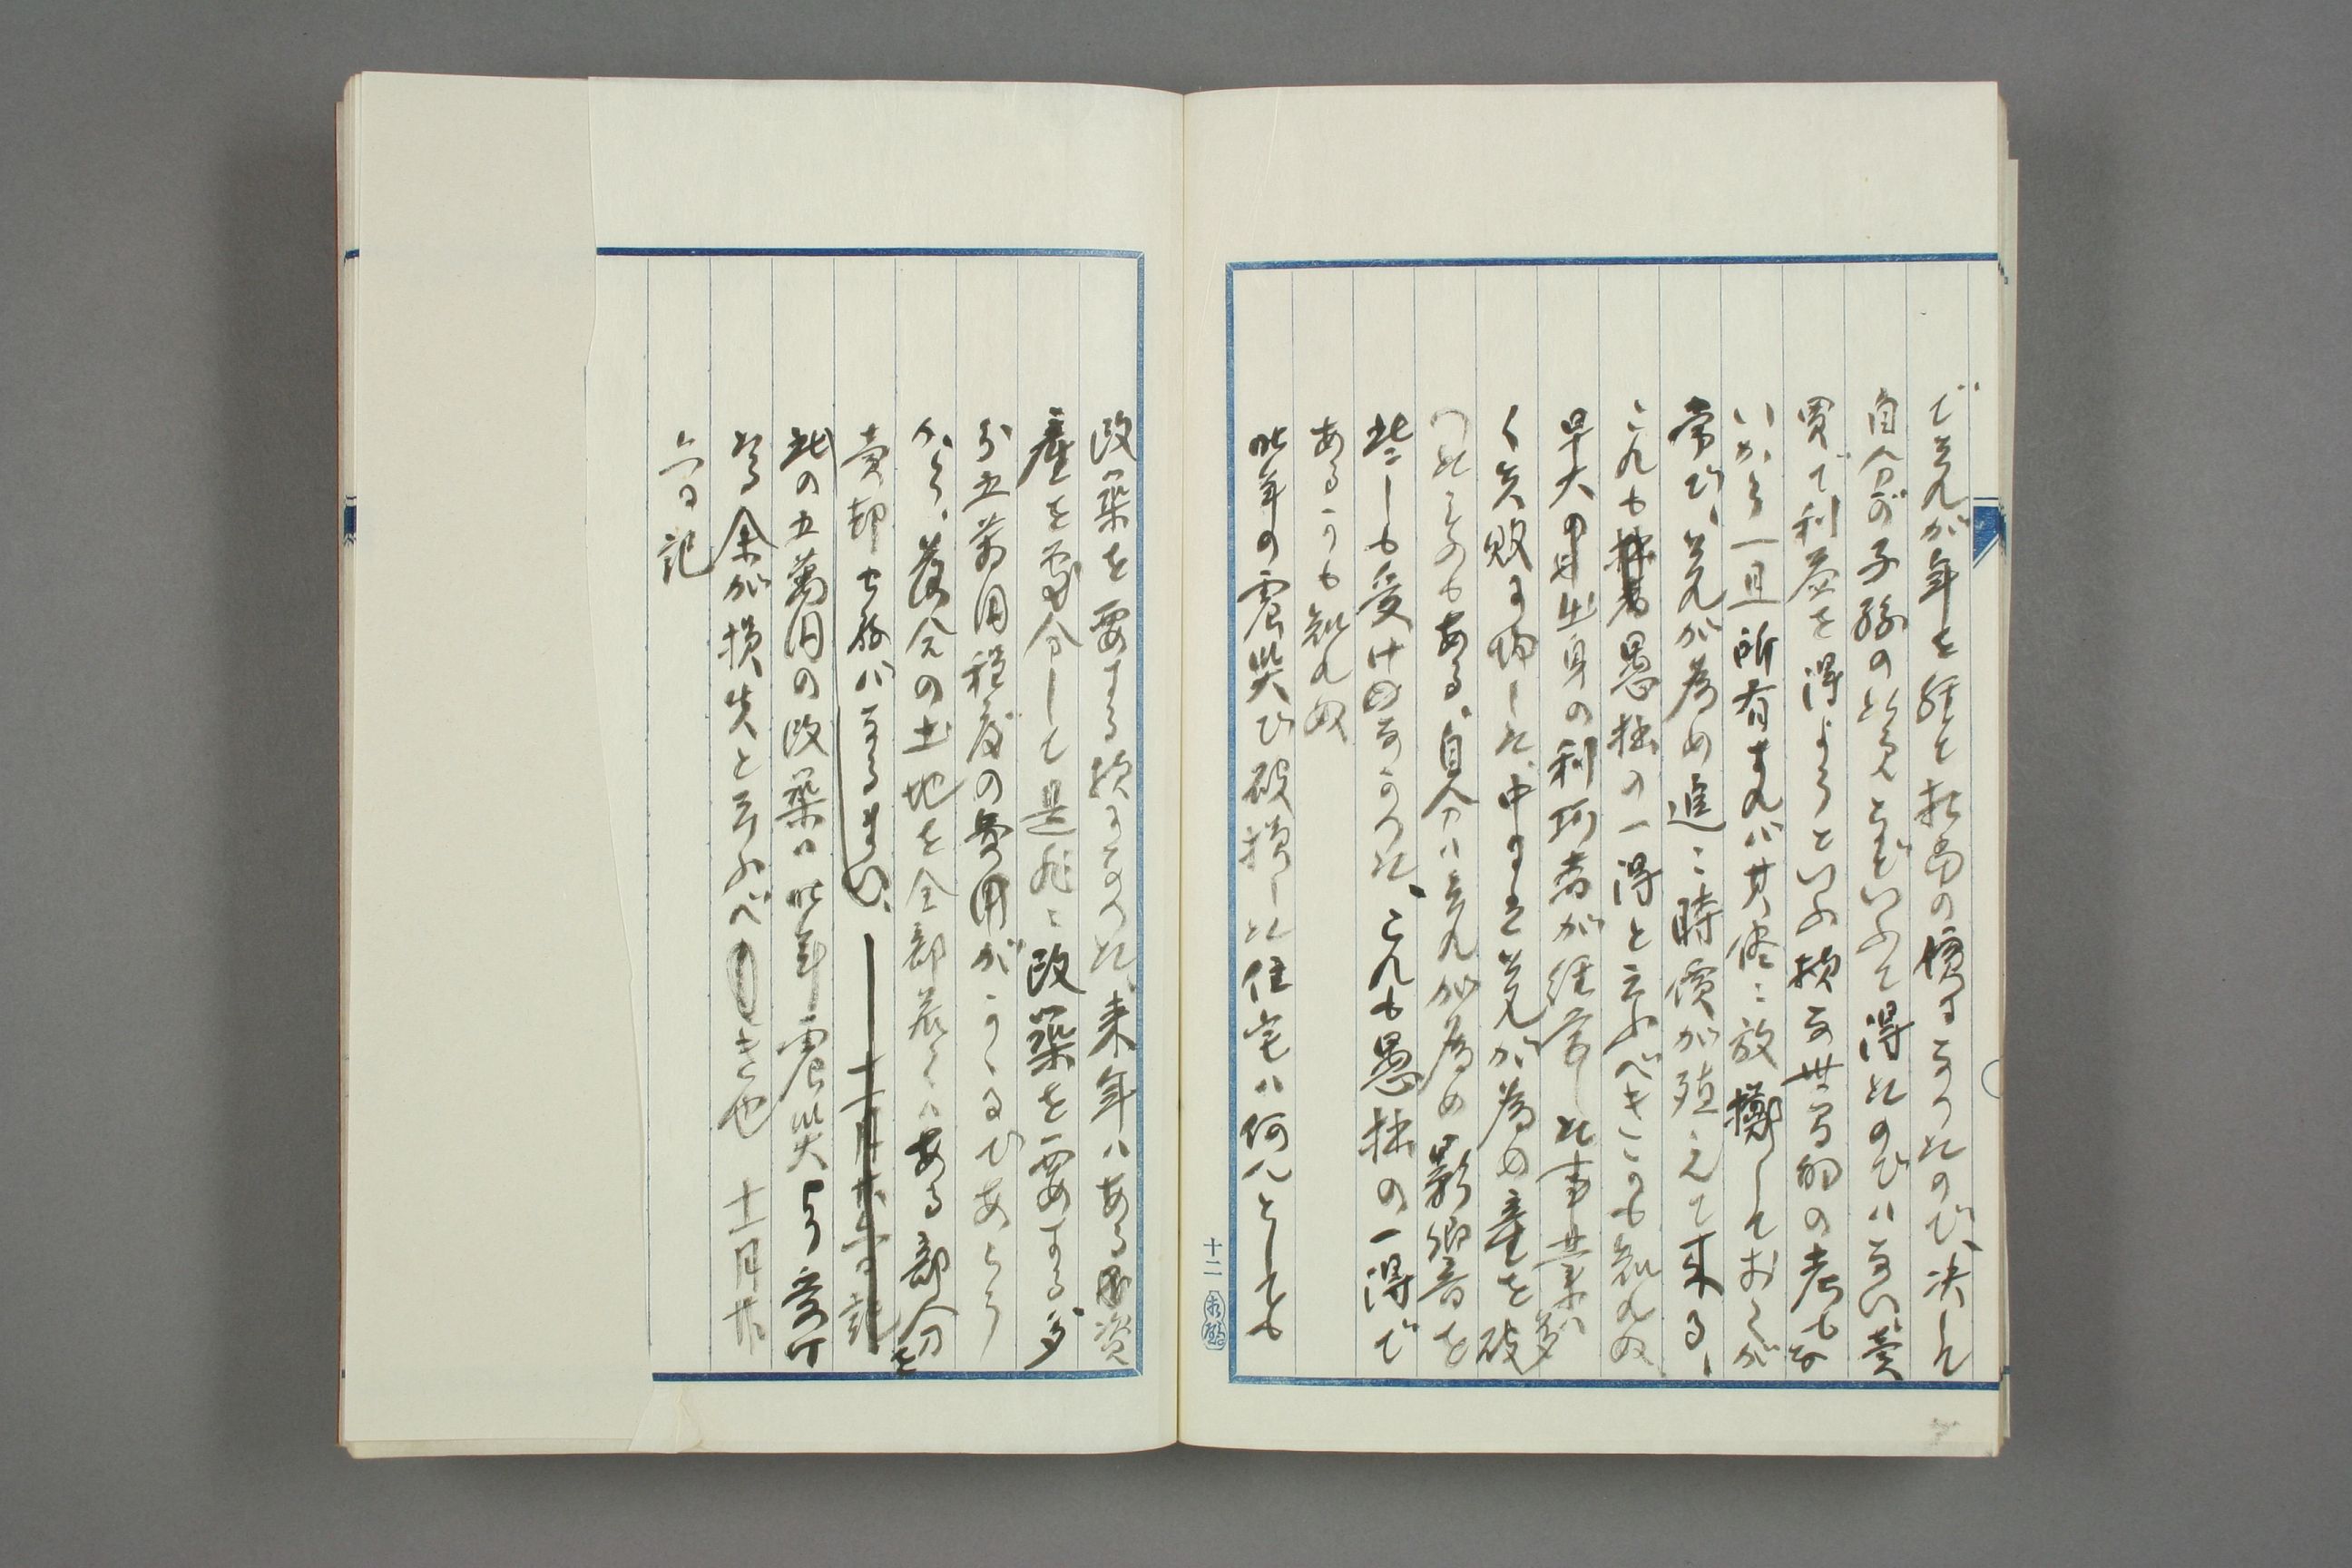 でそれが年を経て相当の價になつたので、決して
自分が子孫の計るなどといふて得たのではない賣
買で利益を得ようといふ様な世間的の考もな
いから一旦所有すれバ其儘に放擲しておくが
常で、それが為め追々時價が殖えて来る、
これも愚拙の一得と云ふべきかも知れぬ
早大の出身の利巧者が経営した事業が多
く失敗に帰した、中にはそれが為め産を破
つたものもある、自分ハそれが為め影響を
些しも受けぬかつた、これも愚拙の一得で
あるかも知れぬ
昨年の震災で破損した住宅ハ何んとしても
改築を要する様になつた、来年ハある資
産を處分して是非に改築を要する、多
分五萬円程度の費用がかゝるであらう
から、落合の土地を全部若くハある部分を
賣却せねバなるまい、
此の五萬円の改築ハ昨年震災より受け
たる余が損失と云ふべき也 十一月廿
六日記
十二